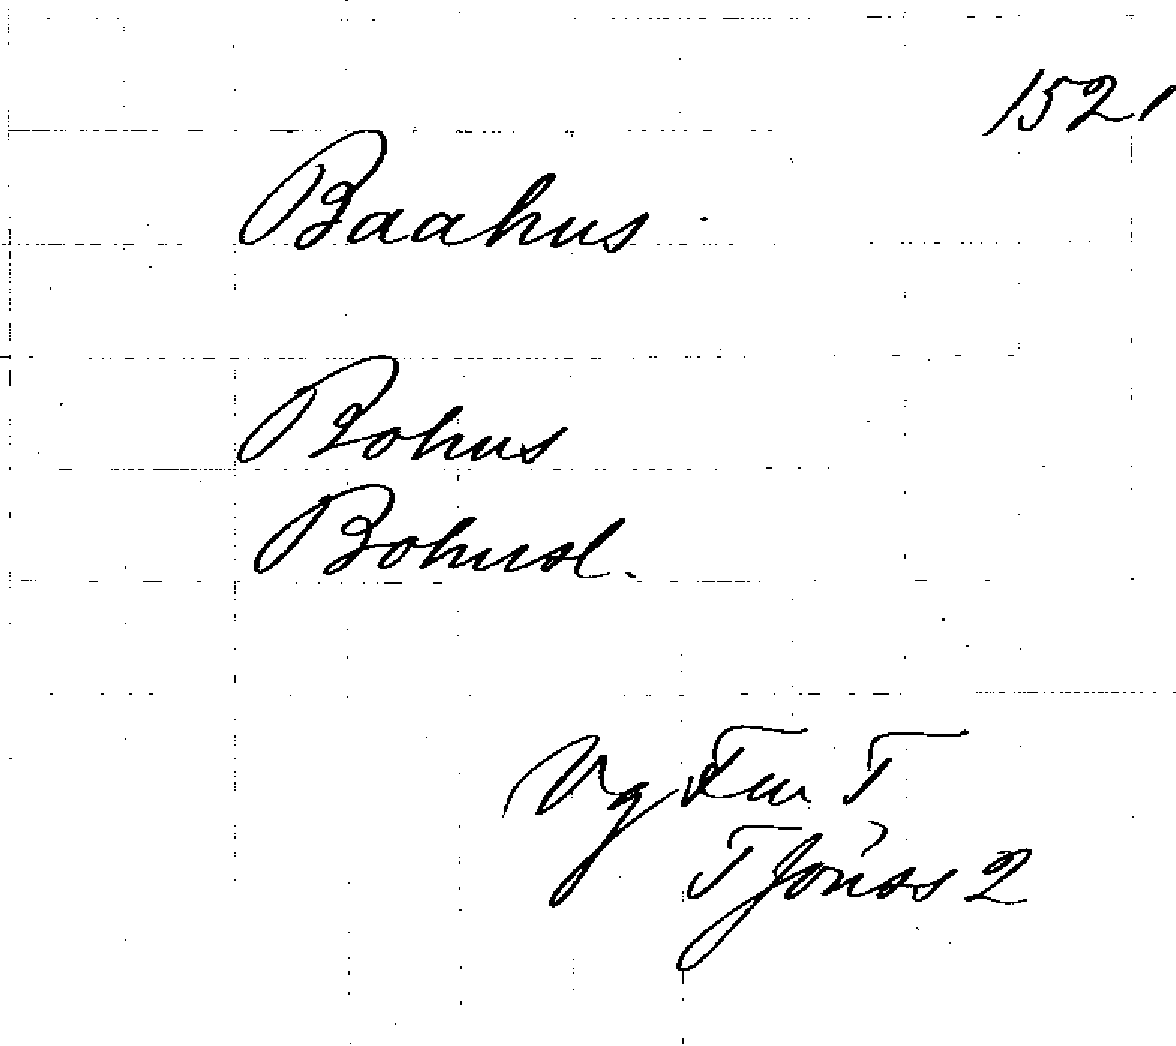 1521
Baahus
Bohus
Bohusl.
Vg Fur T
T Jönss 2